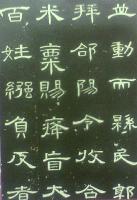 並動而縣民郭
拜郃陽令收合
米粟賜癃盲大
百姓繦負反者